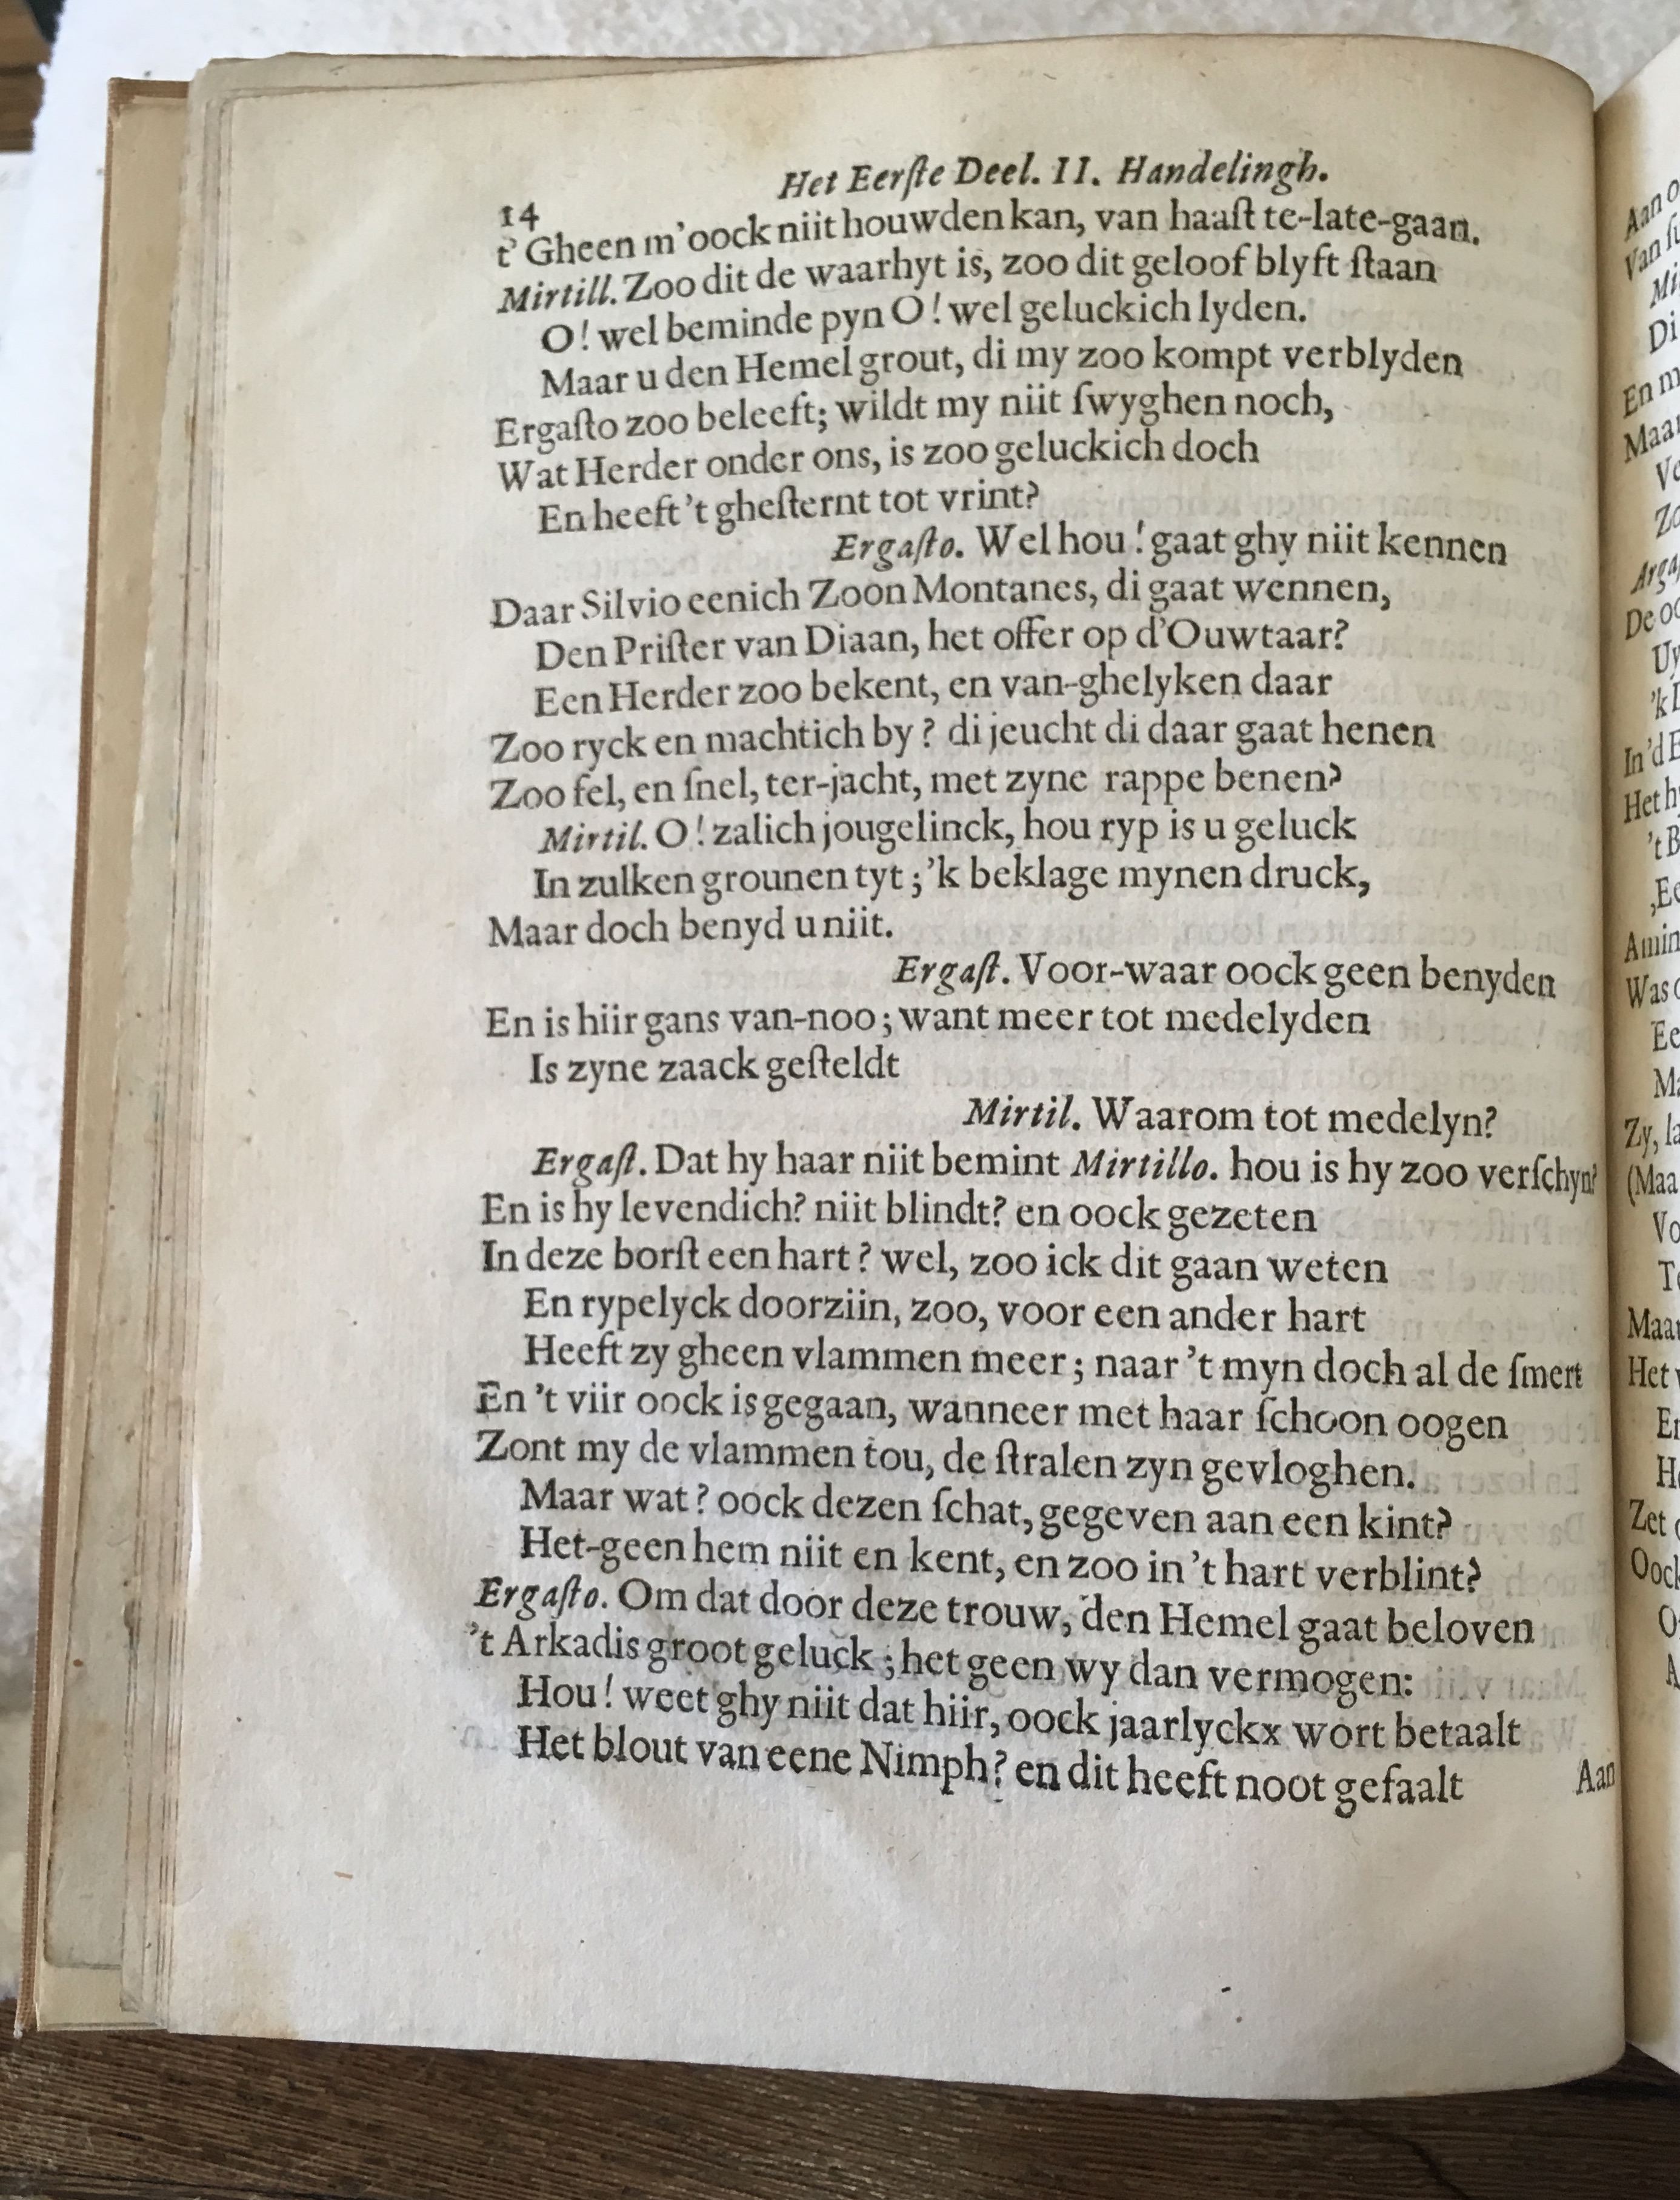 Het Eerſte Deel. II. Handelingh.
14
t' Gheen m'oock niit houwden kan, van haaſt te-late-gaan.
Mirtill. Zoo dit de waarhyt is, zoo dit geloof blyft ſtaan
O! wel beminde pyn O! wel geluckich lyden.
Maar u den Hemel grout, di my zoo kompt verblyden
Ergaſto zoo beleeft; wildt my niit ſwyghen noch,
Wat Herder onder ons, is zoo geluckich doch
En heeft 't gheſternt tot vrint?
Ergaſto. Wel hou! gaat ghy niit kennen
Daar Silvio eenich Zoon Montanes, di gaat wennen,
Den Priſter van Diaan, het offer op d'Ouwtaar?
Een Herder zoo bekent, en van-ghelyken daar
Zoo ryck en machtich by? di jeucht di daar gaat henen
Zoo fel, en ſnel, ter-jacht, met zyne rappe benen?
Mirtil. O! zalich jougelinck, hou ryp is u geluck
In zulken grounen tyt; 'k beklage mynen druck,
Maar doch benyd u niit.
Ergaſt. Voor-waar oock geen benyden
En is hiir gans van-noo; want meer tot medelyden
Is zyne zaack geſteldt
Mirtil. Waarom tot medelyn?
Ergaſt. Dat hy haar niit bemint Mirtillo. hou is hy zoo verſchyn?
En is hy levendich? niit blindt? en oock gezeten
In deze borſt een hart? wel, zoo ick dit gaan weten
En rypelyck doorziin, zoo, voor een ander hart
Heeft zy gheen vlammen meer; naar 't myn doch al de ſmert
En 't viir oock is gegaan, wanneer met haar ſchoon oogen
Zont my de vlammen tou, de ſtralen zyn gevloghen.
Maar wat? oock dezen ſchat, gegeven aan een kint?
Het-geen hem niit en kent, en zoo in 't hart verblint?
Ergaſto. Om dat door deze trouw, den Hemel gaat beloven
't Arkadis groot geluck; het geen wy dan vermogen:
Hou! weet ghy niit dat hiir, oock jaarlyckx wort betaalt
Het blout van eene Nimph? en dit heeft noot gefaalt
Aan